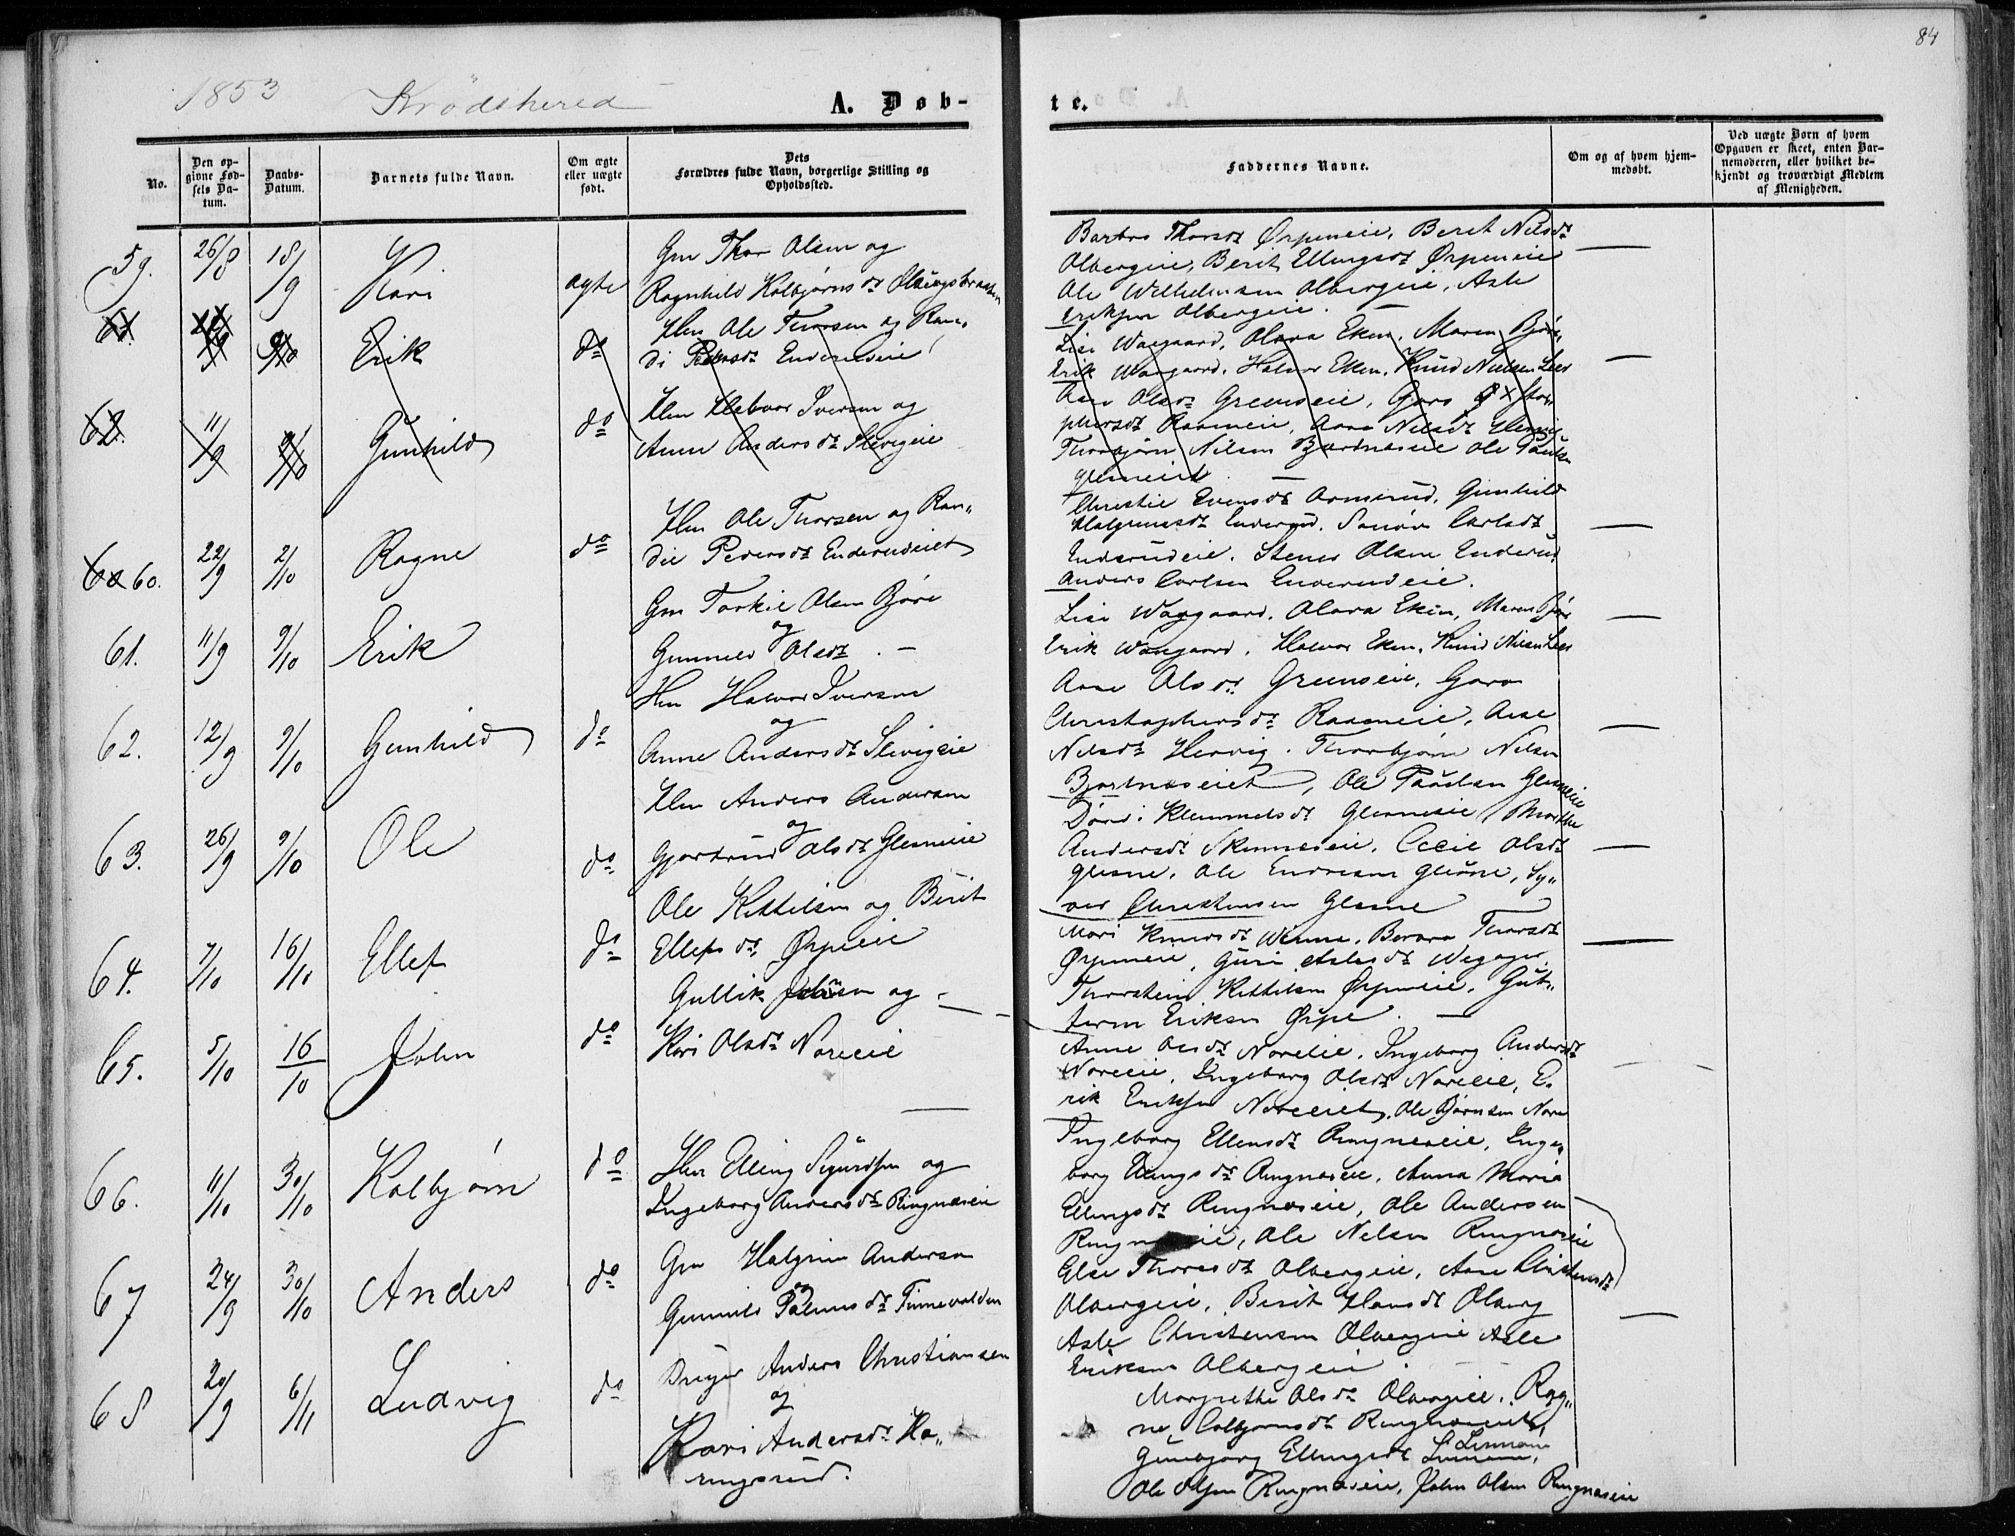 84
1853 Krödshered A. Døb-
te.
No.
Den op-
givne Fød-
sels Da-
tum.
Daabs-
Datum.
Barnets fulde Navn.
Om ægte
eller uægte
født.
Dets
Forældres fulde Navn, borgerlige Stilling og
Opholdssted.
Faddernes Navne.
Om og af hvem hjem-
medøbt.
Ved uægte Børn af hvem
Opgaven er skeet, enten Bar-
nemoderen, eller hvilket be-
kjendt og troværdigt Medlem
af Menigheden.
59. 26/8 18/9 Kari ægte
Gm Thor Olsen og
Ragnhild Kolbjørnsdr
Thorsdr Ørpeneie, Berit Nilsdr
Olbergeie, Berit Ellingsdr Ørpeneie
Ole Wilhelmsen Olbergeie, Asle
Eriksen Olbergeie.
61. 9/10 Erik do
Hm Ole Thorsen og Ran-
di Pedersdr Enderudeie
Lise Waagaard, Olava Eken, Maren Bjøre,
Erik Waagaard, Halvor Eken, Knud Nielsen Lees
62. 11/9 9/10 Gunhild do
Hm Halvor Iversen og
Anne Andersdr Slevigeie
Aase Olsdr Greenseie, Goro
Raameie, Aase Nilsdr
Thorbjørn Nilsen Bjertnæseie Ole Paulsen
Glesneeie
60 60. 22/9 2/10 Ragne do
Hm Ole Thorsen og Ran-
die Pedersdr Enderudeiet
Christie Evensdr Aamerud, Gunhild
Halgrimsdr Enderud, Carlsdr
Enderudeie, Stener Olsen Enderud
Anders Carlsen Enderudeie.
61. 11/9 9/10 Erik
Gm Torkil Olsen Bjøre
og
Gunnild Olsdr. —
Lise Waagaard, Olava Eken, Maren Bjøre
Erik Waagaard, Halvor Eken, Knud Nilsen Lees
62. 12/9 9/10 Gunhild do
Hm Halvor Iversen
og
Anne Andersdr Slevigeie
Aase Olsdr Greenseie, Goro
Christophersdr Raameie, Aase
Nilsdr Hervig, Thorbjørn Nilsen
Bjertnæseiet, Ole Paulsen Glesneeie
63. 26/9 9/10 Ole do
Hm Anders Andersen
og
Gjertrud Olsdr Glesneie
Klemmetsdr Glesneeie, Marthe
Andersdr Skinneseie, Cecil Olsdr
Glesne, Ole Endresen Glesne, Sy-
ver Christensen Glesne
64. 7/10 16/10 Ellef do
Ole Kittilsen og Berit
Ellefsdr Ørpeeie
Mari Knudsdr Wenne, Barbra Thorsdr
Ørpeneie, Guri Aslesdr Wegger
Thorstein Kittilsen Ørpeneie, Gut-
torm Eriksen Ørpe. —
65. 5/10 16/10 John do
Gullik Johnsen og
Kari Olsdr Noreeie
Anne Olsdr Noreeie, Ingeborg Andersdr
Noreeie, Ingeborg Olsdr Noreeie, E-
rik Eriksen Noreeiet, Ole Bjørnsen Nore
66. 11/10 30/10 Kolbjørn do
Hm Elling Sigurdsen og
Ingeborg Andersdr Ringnæseie
Ingeborg Ellensdr Ringnæseie, Inge-
borg Ellingsdr Ringnæseie, Anna Maria
Ellingsdr Ringnæseie, Ole Andersen
Ringnæseie, Ole Nelsen Ringnæseie
67 24/9 30/10 Anders do
Gm Halgrim Andersen
og
Gunnild Palmesdr Finnevolden
Else Thoresdr Olbergeie, Aase Christensdr
Olbergeie, Berit Hansdr Olberg
Asle Christensen Olbergeie Asle
Eriksen Olbergeie.
68 20/9 6/11 Ludvig do
Anders Christiansen
og
Kari Andersdr Ha-
ringsrud.
Margrethe Olsdr Olbergeie, Rag-
ne Colbjørnsdr Ringnæseiet,
Gunbjørg Ellingsdr
Ole Olsen Ringnæseie, John Olsen Ringnæseie